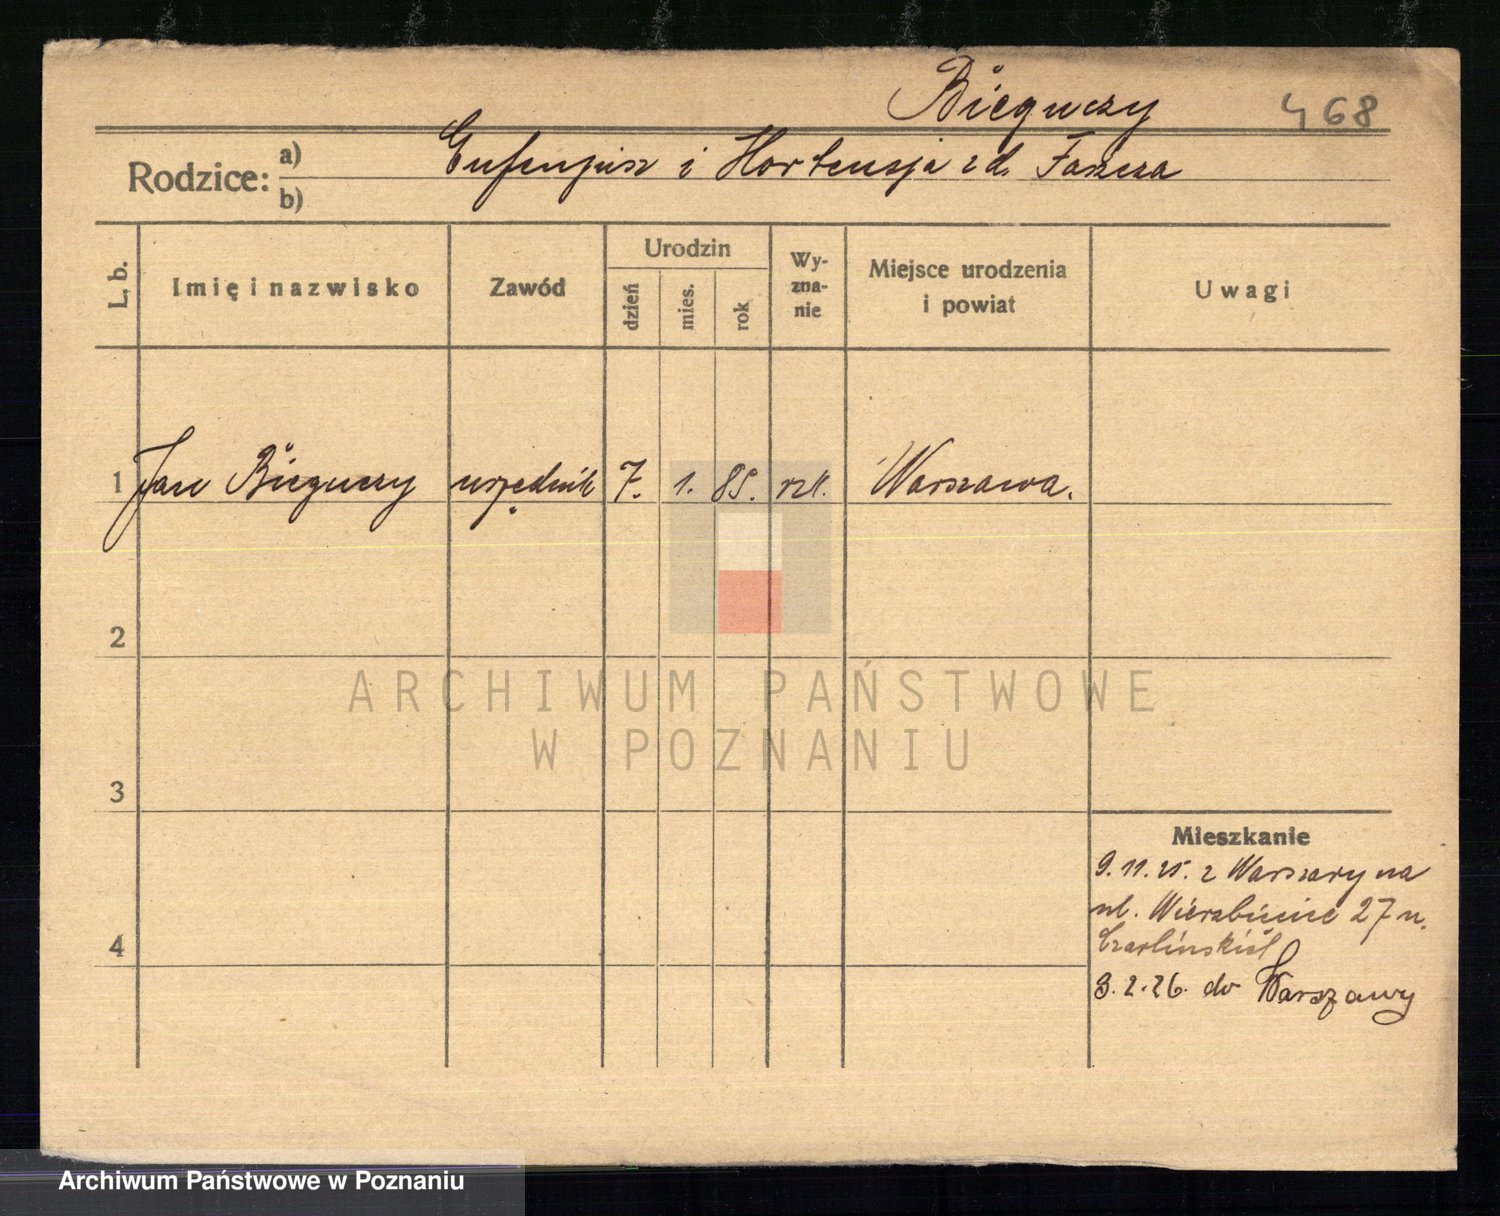 Bieguczy 468
Rodzice: a) b)
Eufenjusz i Hortensja zd. Faszcza
L. b. Imię i nazwisko Zawód Urodzin dzień mies. rok Wy-zna-nie Miejsce urodzenia i powiat Uwagi
1 Jan Bieguczy urzędnik 7. 1. 85. rzk. Warszawa.
2
ARCHIWUM PAŃSTWOWE
W POZNANIU
3
Mieszkanie
9.11.25. z Warszawy na
ul. Wierzbięcice 27 u.
4
3.2.26. do Warszawy
Archiwum Państwowe w Poznaniu